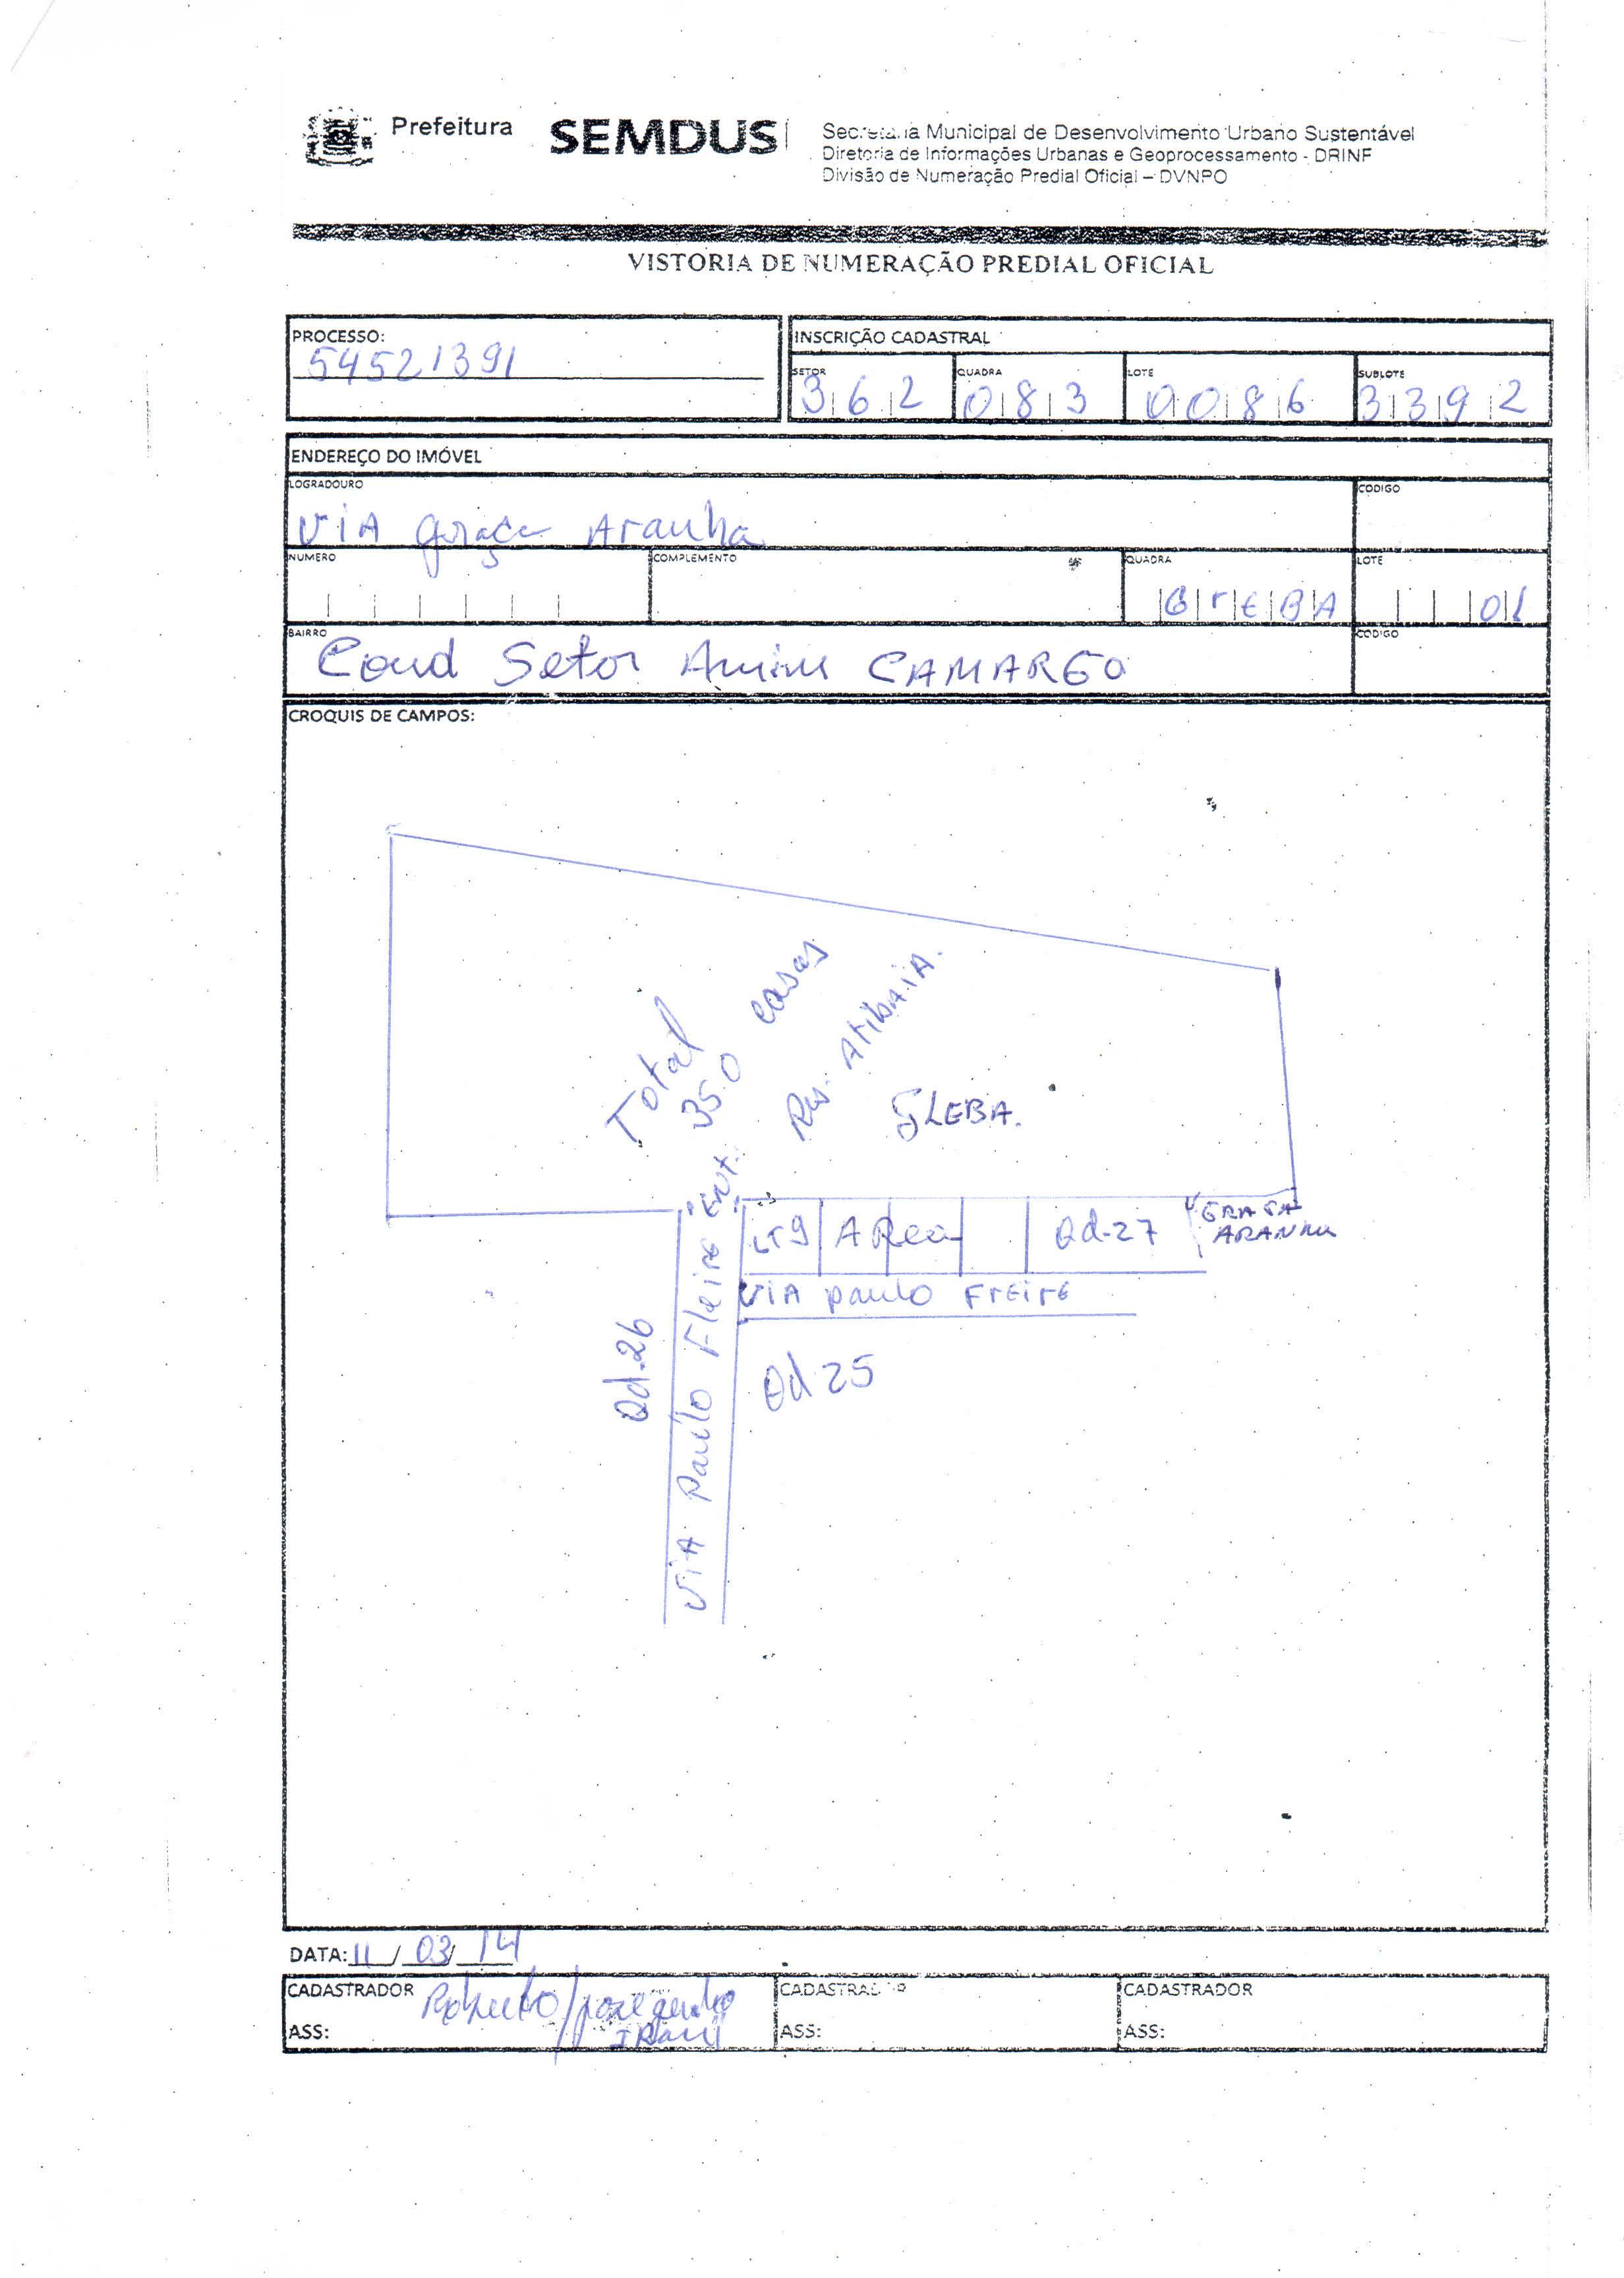 Prefeitura
SEMDUS
Secretaria Municipal de Desenvolvimento Urbano Sustentável
Diretoria de Informações Urbanas e Geoprocessamento - DRINF
Divisão de Numeração Predial Oficial – DVNPO
VISTORIA DE NUMERAÇÃO PREDIAL OFICIAL
PROCESSO:
54521391
INSCRIÇÃO CADASTRAL
SETOR QUADRA LOTE SUBLOTE
362 083 0086 3392
ENDEREÇO DO IMÓVEL
LOGRADOURO CODIGO
VIA Graça Aranha
NUMERO COMPLEMENTO QUADRA LOTE
GrEBA 01
BAIRRO CODIGO
Cond Setor CAMARGO
CROQUIS DE CAMPOS:
Total
350 casas
Ent. Res. AtibaiA.
GLEBA.
LT9 ARea Qd-27
V GRAÇA
ARANHA
VIA paulo FrEirE
Qd-26
VIA Paulo Fleire
Qd 25
DATA: 11 / 03 / 14
CADASTRADOR Roberto / IRani
ASS:
CADASTRADOR
ASS:
CADASTRADOR
ASS: